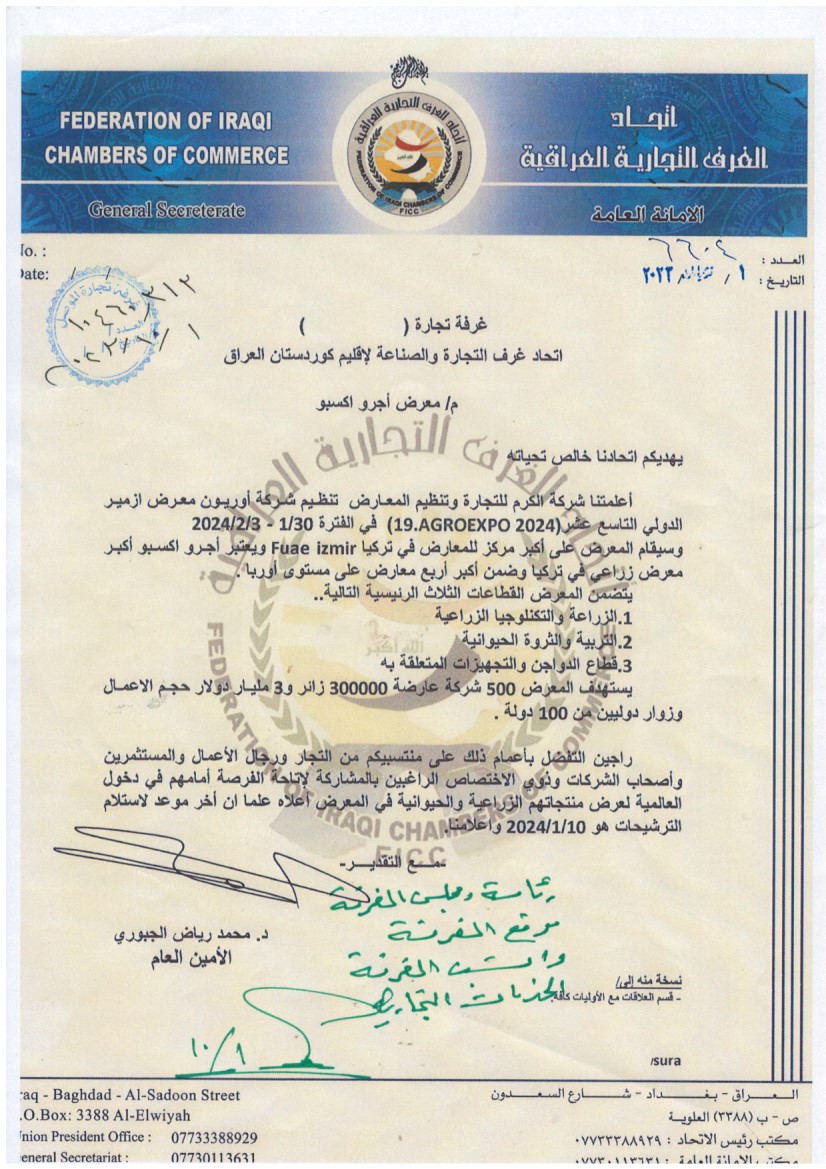 FEDERATION OF IRAQI
CHAMBERS OF COMMERCE
General Secreterate
اتحاد
الغرف التجارية العراقية
الامانة العامة
اتحاد الغرف التجارية العراقية
FEDERATION OF IRAQI CHAMBERS OF COMMERCE
FICC
No. :
Date: / /
العدد : ٦٦٠٤
التاريخ : ١ / / ٢٠٢٣
غرفة تجارة الموصل
العدد
غرفة تجارة ( )
اتحاد غرف التجارة والصناعة لإقليم كوردستان العراق
م/ معرض أجرو اكسبو
يهديكم اتحادنا خالص تحياته
أعلمتنا شركة الكرم للتجارة وتنظيم المعارض تنظيم شركة أوريون معرض ازمير
الدولي التاسع عشر(19.AGROEXPO 2024) في الفترة 1/30 - 2024/2/3
وسيقام المعرض على أكبر مركز للمعارض في تركيا Fuae izmir ويعتبر أجرو اكسبو أكبر
معرض زراعي في تركيا وضمن أكبر أربع معارض على مستوى أوربا .
يتضمن المعرض القطاعات الثلاث الرئيسية التالية..
1.الزراعة والتكنلوجيا الزراعية
2.التربية والثروة الحيوانية
3.قطاع الدواجن والتجهيزات المتعلقة به
يستهدف المعرض 500 شركة عارضة 300000 زائر و3 مليار دولار حجم الاعمال
وزوار دوليين من 100 دولة .
راجين التفضل بأعمام ذلك على منتسبيكم من التجار ورجال الأعمال والمستثمرين
وأصحاب الشركات وذوي الاختصاص الراغبين بالمشاركة لإتاحة الفرصة أمامهم في دخول
العالمية لعرض منتجاتهم الزراعية والحيوانية في المعرض أعلاه علما ان أخر موعد لاستلام
الترشيحات هو 2024/1/10 وأعلامنا.
-مع التقدير-
د. محمد رياض الجبوري
الأمين العام
رئاسة ومجلس الغرفة
موقع الغرفة
الغرفة
الخدمات التجارية
١٠/١
نسخة منه إلى/
- قسم العلاقات مع الأوليات كافة
sura/
raq - Baghdad - Al-Sadoon Street
.O.Box: 3388 Al-Elwiyah
nion President Office : 07733388929
eneral Secretariat : 07730113631
العراق - بغداد - شارع السعدون
ص - ب (٣٣٨٨) العلوية
مكتب رئيس الاتحاد : ٠٧٧٣٣٣٨٨٩٢٩
مكتب الامانة العامة : ٠٧٧٣٠١١٣٦٣١